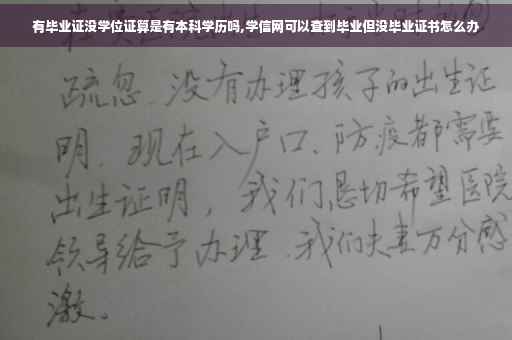 有毕业证没学位证算是有本科学历吗,学信网可以查到毕业但没毕业证书怎么办
疏忽、没有办理孩子的出生证
明、现在入户口、防疫都需要
出生证明，我们恳切希望医院
领导给予办理、我们夫妻万分感
激。